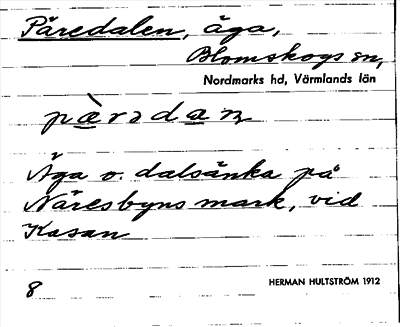 Päredalen, äga,
Blomskogs sn,
Nordmarks hd, Värmlands län
Äga o. dalsänka på
Näresbyns mark, vid
Kasan
8
HERMAN HULTSTRÖM 1912